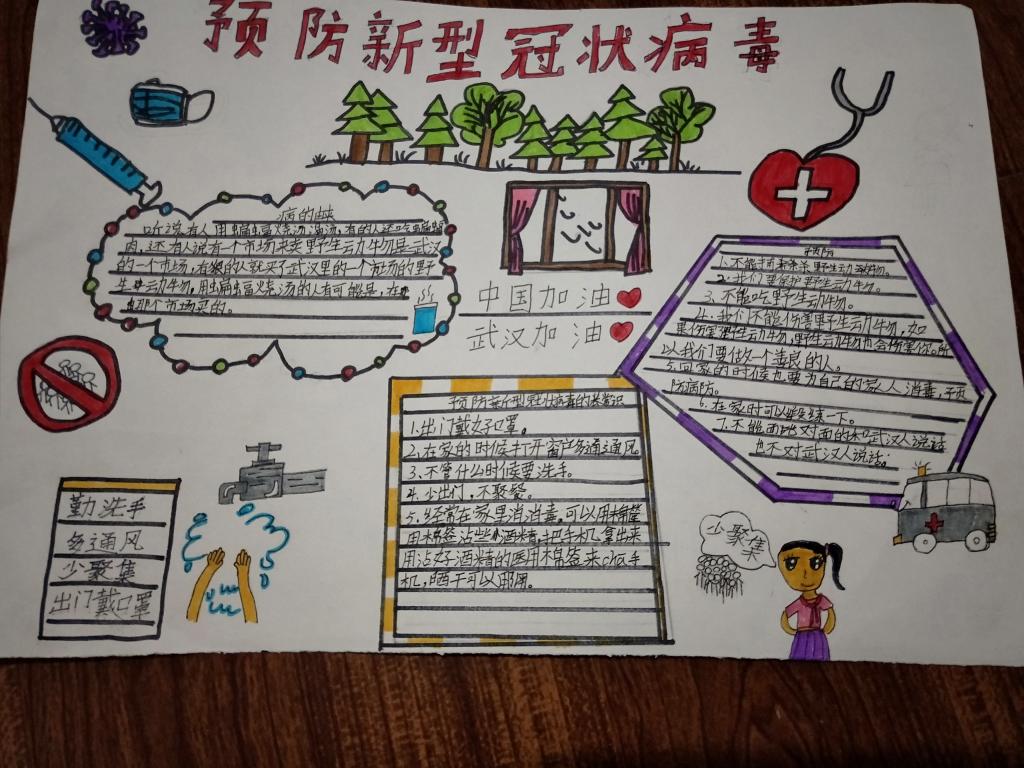 预防新型冠状病毒
病的由来
听说有人用蝙蝠烧汤喝汤,有的人还吃蝙蝠
肉,还有人说有一个市场来卖野生动牛物是武汉
的一个市场,有的人就买了武汉里的一个市场的野
生动牛物,用蝙蝠烧汤的人有可能是,在
那个市场买的。
中国加油
武汉加油
预防
1.不能打野生动牛物。
2.我们要保护野生动牛物。
3.不能吃野生动牛物。
4.我们不能伤害野生动牛物,如
果伤害野生动牛物,野生动牛物也会伤害你。所
以我们要做个善良的人。
5.回家的时候也要为自己的家人消毒,干预
防病防。
6.在家时可以锻练一下。
7.不能面对面的和武汉人说话
也不对武汉人说话。
预防新型冠状病毒的长常识
1.出门戴好口罩。
2.在家的时候打开窗户多通通风
3.不管什么时候要洗手。
4.少出门,不聚餐。
5.经常在家里消消毒,可以用棉签
用棉签沾些酒精,把手机拿出来
用沾好酒精的医用棉签来cha手
机,晒干可以用。
勤洗手
多通风
少聚集
出门戴口罩
少聚集